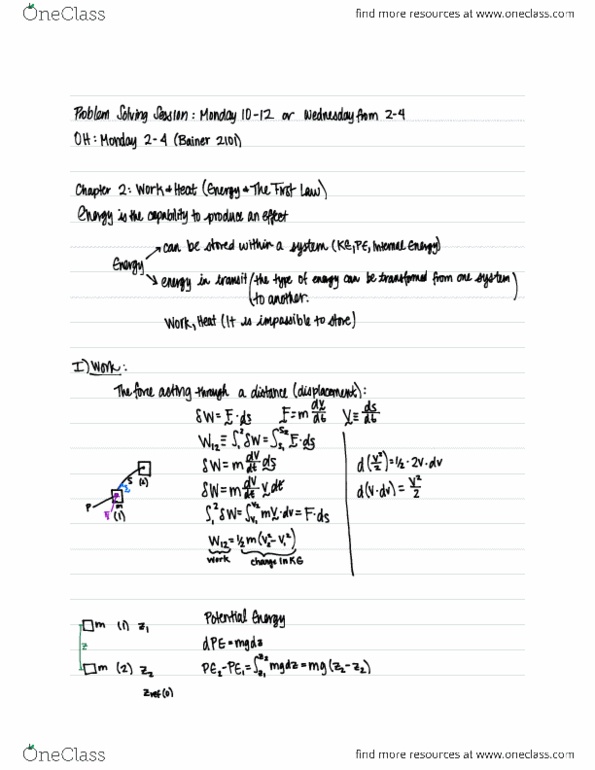 OneClass
find more resources at www.oneclass.com
Problem Solving Session: Monday 10-12 or Wednesday from 2-4
OH: Monday 2-4 (Bainer 2101)
Chapter 2: Work & Heat (Energy & The First Law)
Energy is the capability to produce an effect
can be stored within a system (KE, PE, Internal Energy)
Energy
energy in transit (the type of energy can be transformed from one system
to another.)
Work, Heat (It is impossible to store)
I) Work:
The force acting through a distance (displacement):
δW = F · ds F = m dV/dt V = ds/dt
W₁₂ ≡ ∫₁² δW = ∫_{S₁}^{S₂} F · ds
δW = m dV/dt ds d(V²/2) = 1/2 · 2V · dv
δW = m dV/dt V dt d(V · dv) = V²/2
∫₁² δW = ∫_{V₁}^{V₂} mV · dv = F · ds
W₁₂ = 1/2 m (V₂² - V₁²)
work change in KE
S
(2)
P
m
(1)
Potential Energy
m (1) Z₁
dPE = mgdz
z
m (2) Z₂
PE₂ - PE₁ = ∫_{Z₁}^{Z₂} mgdz = mg (Z₂ - Z₂)
Zref (0)
OneClass
find more resources at www.oneclass.com